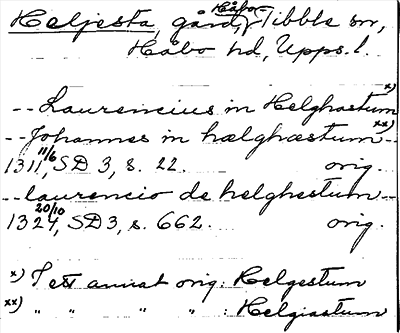 Heljesta, gård, Håbo-Tibble sn,
Håbo hd, Upps. l.
-- Laurencius in Helghastum x)
-- Johannes in hælghæstum -- xx)
1311 11/6, SD 3, s. 22. orig.
-- laurencio de helghestum --
1324 20/10, SD 3, s. 662. orig.
x) I ett annat orig: Helgestum
xx) " " " " : Helgiastum